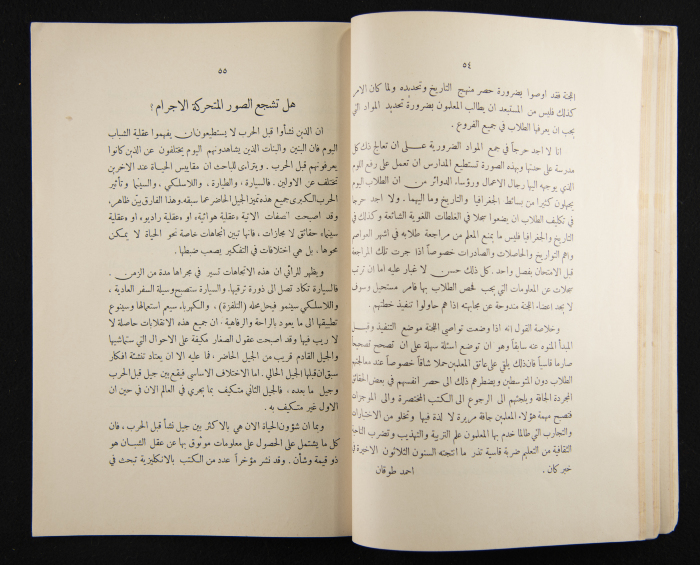 ٥٤
اللجنة فقد اوصوا بضرورة حصر منهج التاريخ وتحديده ولما كان الامر
كذلك فليس من المستبعد ان يطالب المعلمون بضرورة تحديد المواد التي
يجب ان يعرفها الطلاب في جميع الفروع .
انا لا اجد حرجاً في جمع المواد الضرورية عـلى ان تعالج ذلك كل
مدرسة على حدتها وبهذه الصورة تستطيع المدارس ان تعمل على رفع اللوم
الذي يوجهه اليها رجال الاعمال ورؤساء الدوائر من ان الطلاب اليوم
يجهلون كثيراً من بسائط الجغرافيا والتاريخ وما اليهما . ولا اجد حرجاً
في تكليف الطلاب ان يضعوا سجلا في الغلطات اللغوية الشائعة وكذلك في
التاريخ والجغرافيا فليس ما يمنع المعلم من مراجعة طلابه في اشهر العواصم
واهم التواريخ والحاصلات والصادرات خصوصاً اذا جرت تلك المراجعة
قبل الامتحان بفصل واحد . كل ذلك حسن لا غبار عليه اما ان ترتب
سجلات عن المعلومات التي يجب فحص الطلاب بها فامر مستحيل وسوف
لا يجد اعضاء اللجنة مندوحة عن مجابهته اذا هم حاولوا تنفيذ خطتهم .
وخلاصة القول انه اذا وضعت تواصي اللجنة موضع التنفيذ وقبـل
المبدأ المنوه عنه سابقاً وهو ان توضع اسئلة سهلة على ان تصحح تصحيحاً
صارما قاسياً فان ذلك يلقي على عاتق المعلمين حملا شاقاً خصوصاً عند معالجتهم
الطلاب دون المتوسطين ويضطرهم ذلك الى حصر انفسهم في بعض الحقائق
المجردة الجافة ويلجئهم الى الرجوع الى الكتب المختصرة والى الموجزات
فتصبح مهمة هؤلاء المعلمين جافة مريرة لا لذة فيها وتخلو من الاختبارات
والتجارب التي طالما خدم بها المعلمون علم التربية والتهذيب وتضرب الناحية
الثقافية من التعليم ضربة قاسية تذر ما انتجته السنون الثلاثون الاخيرة في
خبر كان .
احمد طوقان
٥٥
هل تشجع الصور المتحركة الاجرام ؟
ان الذين نشأوا قبل الحرب لا يستطيعون ان يفهموا عقلية الشباب
اليوم فان البنين والبنات الذين يشاهدونهم اليوم يختلفون عن الذين كانوا
يعرفونهم قبل الحرب . ويتراءى للباحث ان مقاييس الحياة عند الاخرين
تختلف عن الاولين . فالسيارة ، والطيارة ، واللاسلكي ، والسينما وتأثير
الحرب الكبرى جميع هذه تميز الجيل الحاضر عما سبقه وهذا الفارق بيّن ظاهر،
وقد اصبحت الصفات الاتية «عقلية هوائية» او «عقلية راديو» او «عقلية
سينما» حقائق لا مجازات ، فانها تبين اتجاهات خاصة نحو الحياة لا يمكن
محوها ، بل هي اختلافات في التفكير يصعب ضبطها .
ويظهر للرائي ان هذه الاتجاهات تسير في مجراها مدة من الزمن .
فالسيارة تكاد تصل الى ذورة ترقيها . والسيارة ستصبح وسيلة السفر العادية ،
واللاسلكي سينمو فيحل محله (التلفزة) ، والكهرباء سيعم استعمالها وسينوع
تطبيقها الى ما يعود بالراحة والرفاهية . ان جميع هذه الانقلابات حاصلة لا
لا ريب فيها وقد اصبحت عقول الصغار مكيفة على الاحوال التي ستماشيها
والجيل القادم قريب من الجيل الحاضر ، فما عليه الا ان يعتاد تنشئة افكار
سبق ان قبلها الجيل الحالي . اما الاختلاف الاساسي فيقع بين جيل قبل الحرب
وجيل ما بعده ، فالجيل الثاني متكيف بما يجري في العالم الان في حين ان
الاول غير متكيف به .
وبما ان شؤون الحياة الان هي بالاكثر بين جيل نشأ قبل الحرب ، فان
كل ما يشتمل على الحصول على معلومات موثوق بها عن عقل الشبان هو
ذو قيمة وشأن . وقد نشر مؤخراً عدد من الكتب بالانكليزية تبحث في